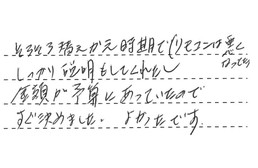 そろそろ替えかえ時期で(リモコンは悪く
なってた
しっかり説明もしてくれたし
金額が予算にあっていたので
すぐ決めました。よかったです。